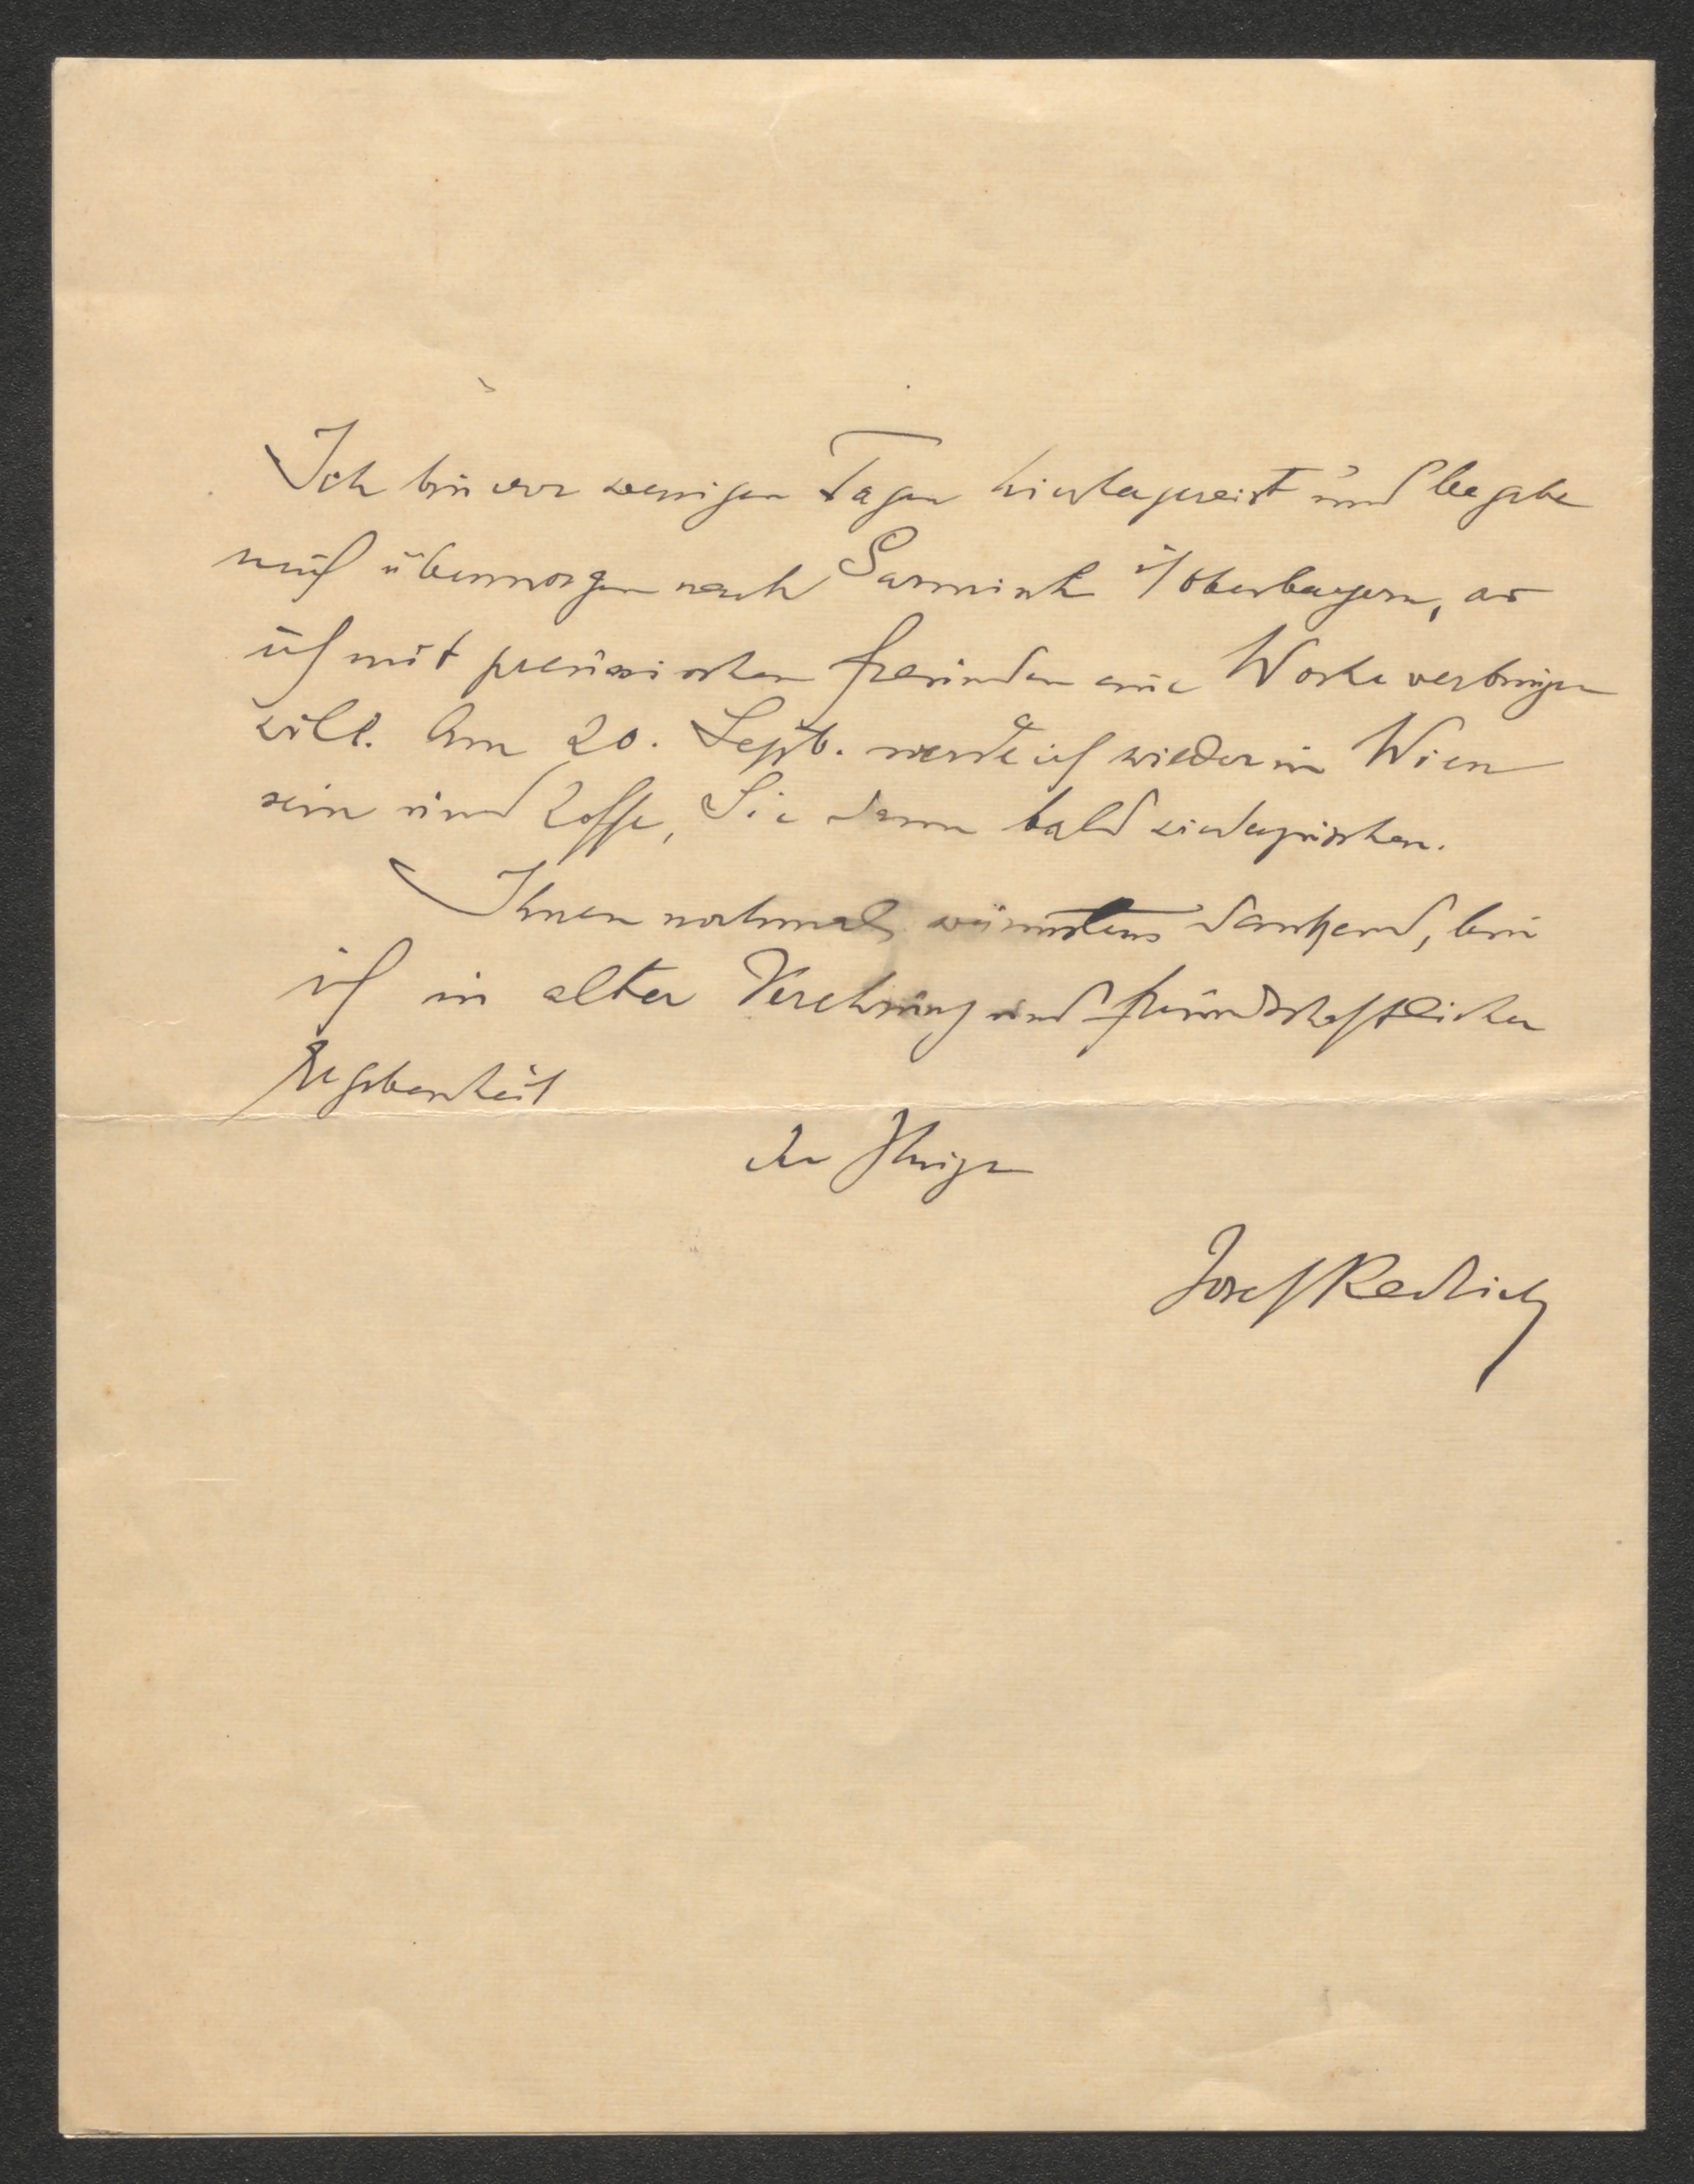 Ich bin vor wenigen Tagen hierhergereist und begebe
mich übermorgen nach Garmisch i/Oberbayern, wo
ich mit preussischen Freunden eine Woche verbringen
will. Am 20. Septb. werde ich wieder in Wien
sein und hoffe, Sie dann bald wiederzusehen.
Ihnen nochmals wärmstens dankend, bin
ich in alter Verehrung und freundschaftlicher
Ergebenheit
der Ihrige
Josef Redlich